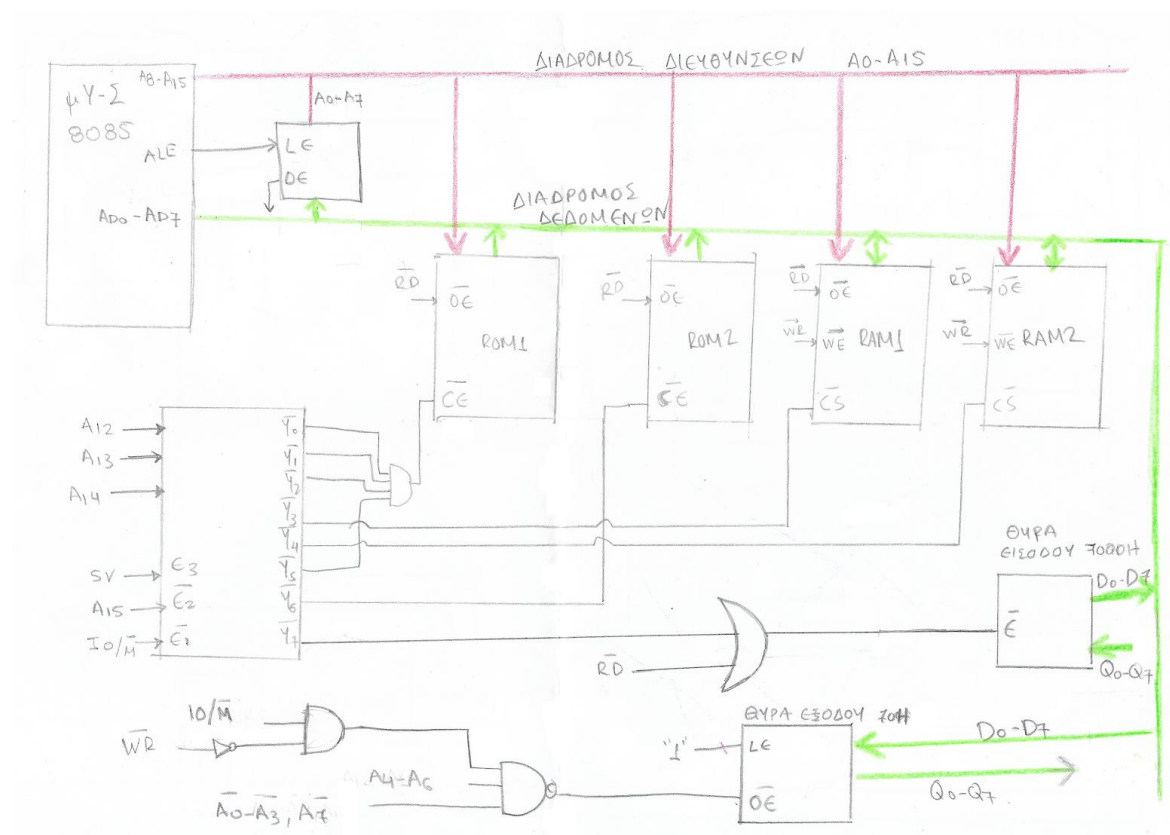 ΔΙΑΔΡΟΜΟΣ ΔΙΕΥΘΥΝΣΕΩΝ A0-A15
A8-A15
μΥ-Σ
8085
A0-A7
ALE
LE
O̅E̅
AD0-AD7
ΔΙΑΔΡΟΜΟΣ
ΔΕΔΟΜΕΝΩΝ
R̅D̅
O̅E̅
ROM1
C̅E̅
R̅D̅
O̅E̅
ROM2
C̅E̅
R̅D̅
O̅E̅
W̅R̅
W̅E̅
RAM1
C̅S̅
R̅D̅
O̅E̅
W̅R̅
W̅E̅
RAM2
C̅S̅
A12
A13
A14
5V
A15
IO/M̅
E3
E̅2
E̅1
Y̅0
Y̅1
Y̅2
Y̅3
Y̅4
Y̅5
Y̅6
Y̅7
R̅D̅
ΘΥΡΑ
ΕΙΣΟΔΟΥ 7000H
D0-D7
E̅
Q0-Q7
IO/M̅
W̅R̅
A4-A6
A̅0-A̅3, A̅7
ΘΥΡΑ ΕΞΟΔΟΥ 70H
"1"
LE
O̅E̅
D0-D7
Q0-Q7